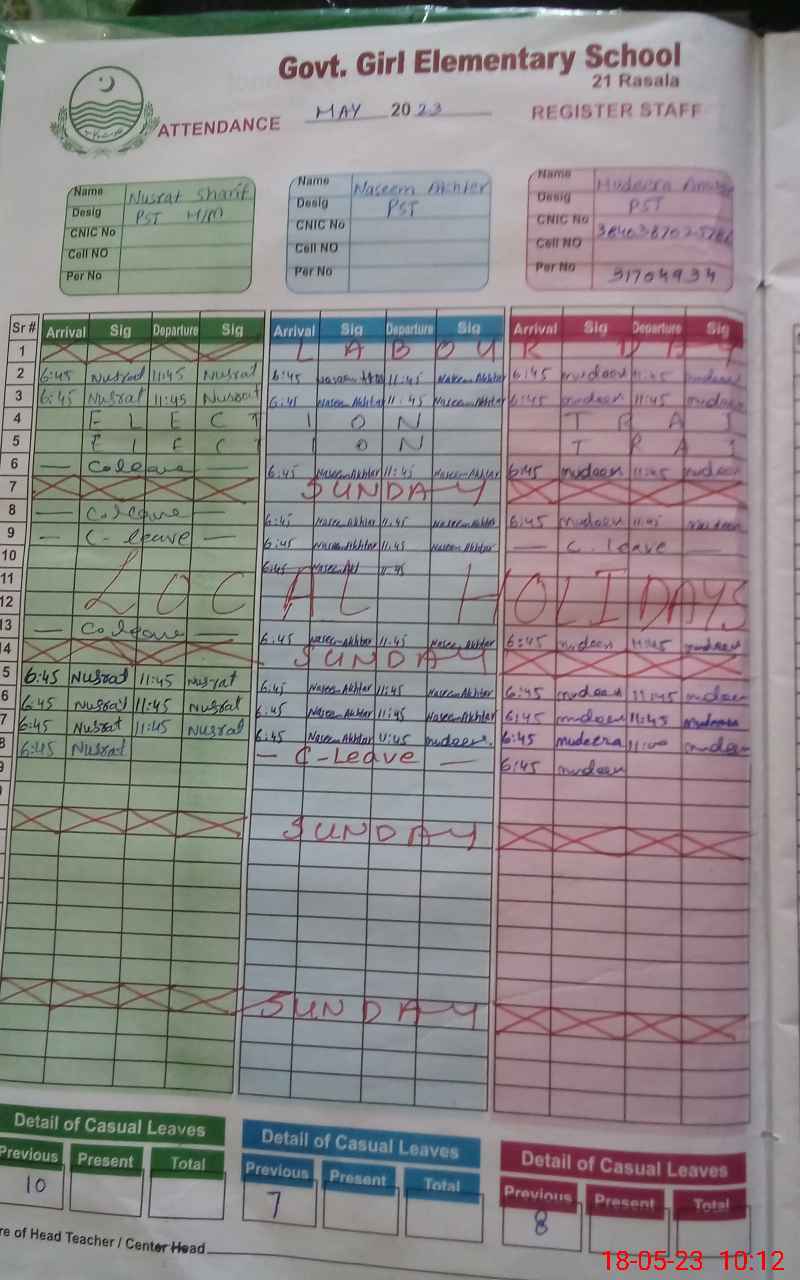 Govt. Girl Elementary School
21 Rasala
ATTENDANCE MAY 2023 REGISTER STAFF
Name Nusrat Sharif Name Naseem Akhter Name Mudeera
Desig PST H/M Desig PST Desig PST
CNIC No CNIC No CNIC No
Cell NO Cell NO Cell NO
Per No Per No Per No 31704934
Sr # Arrival Sig Departure Sig Arrival Sig Departure Sig Arrival Sig Departure Sig
1 LABOUR DAY
2 6:45 Nusrat 11:45 Nusrat 6:45 Naseem Akhtar 11:45 Naseem Akhtar 6:45 mudeera 11:45 mudeera
3 6:45 Nusrat 11:45 Nusrat 6:45 Naseem Akhtar 11:45 Naseem Akhtar 6:45 mudeera 11:45 mudeera
4 E L E C T I O N T R A I
5 E L E C T I O N T R A I
6 — C.leave — 6:45 Naseem Akhtar 11:45 Naseem Akhtar 6:45 mudeera 11:45 mudeera
7 SUNDAY
8 — C.leave — 6:45 Naseem Akhtar 11:45 Naseem Akhtar 6:45 mudeera 11:45 mudeera
9 — C-leave — 6:45 Naseem Akhtar 11:45 Naseem Akhtar — C.leave —
10 6:45 11:45
11
12 LOCAL HOLIDAYS
13 — C.leave — 6:45 Naseem Akhtar 11:45 Naseem Akhtar 6:45 mudeera 11:45 mudeera
14 SUNDAY
5 6:45 Nusrat 11:45 Nusrat 6:45 Naseem Akhtar 11:45 Naseem Akhtar 6:45 mudeera 11:45 mudeera
6 6:45 Nusrat 11:45 Nusrat 6:45 Naseem Akhtar 11:45 Naseem Akhtar 6:45 mudeera 11:45 mudeera
7 6:45 Nusrat 11:45 Nusrat 6:45 Naseem Akhtar 11:45 mudeera 6:45 mudeera 11:00 mudeera
8 6:45 Nusrat — C-Leave — 6:45 mudeera
9
SUNDAY
SUNDAY
Detail of Casual Leaves Detail of Casual Leaves Detail of Casual Leaves
Previous Present Total Previous Present Total Previous Present Total
10 7 8
re of Head Teacher / Center Head
18-05-23 10:12